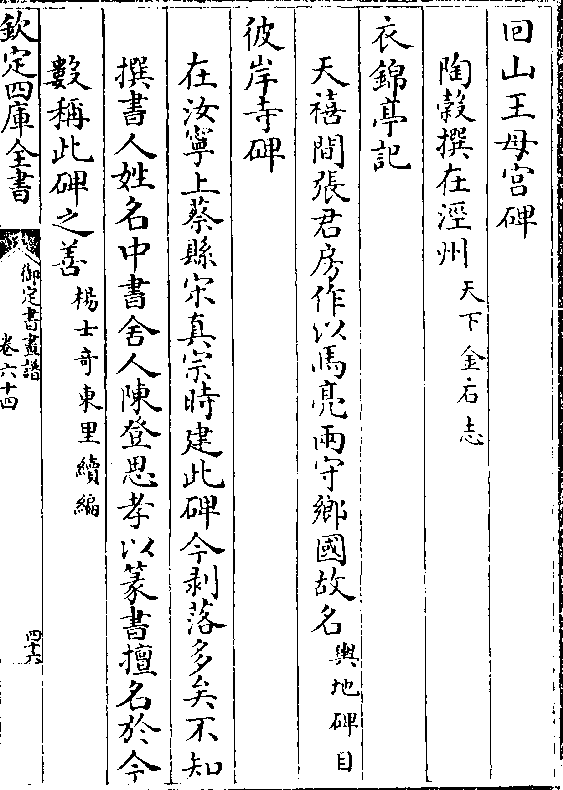 回山王母宫碑
陶穀撰在涇州天下金石志
衣錦亭記
天禧間張君房作以馬亮兩守鄉國故名輿地碑目
彼岸寺碑
在汝寧上蔡縣宋真宗時建此碑今剥落多矣不知
撰書人姓名中書舍人陳登思孝以篆書擅名於今
數稱此碑之善楊士奇東里續編
欽定四庫全書
御定書畫譜
卷六十四
四十六